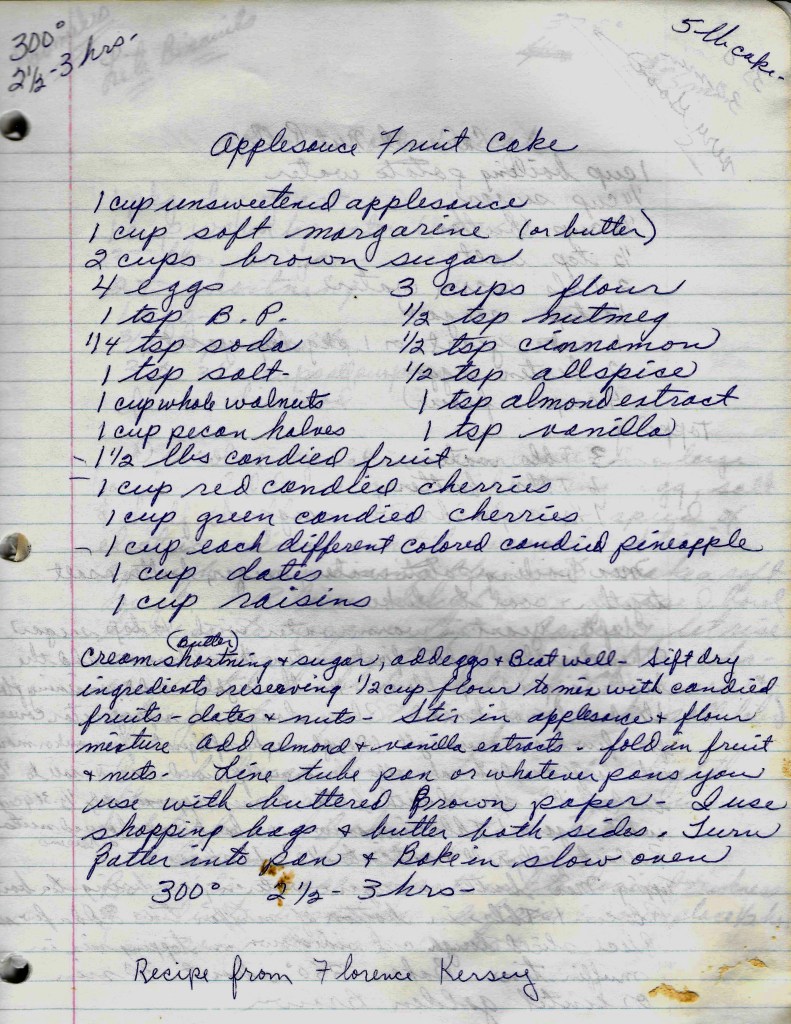 300°
2 1/2 - 3 hrs-
5 lb cake-
Applesauce Fruit Cake
1 cup unsweetened applesauce
1 cup soft margarine (or butter)
2 cups brown sugar
4 eggs 3 cups flour
1 tsp B.P. 1/2 tsp nutmeg
1/4 tsp soda 1/2 tsp cinnamon
1 tsp salt- 1/2 tsp allspice
1 cup whole walnuts 1 tsp almond extract
1 cup pecan halves 1 tsp vanilla
- 1 1/2 lbs candied fruit
- 1 cup red candied cherries
1 cup green candied cherries
- 1 cup each different colored candied pineapple
1 cup dates
1 cup raisins
(Butter)
Cream shortning + sugar, add eggs + Beat well - Sift dry
ingredients reserving 1/2 cup flour to mix with candied
fruits - dates + nuts - Stir in applesauce + flour
mixture Add almond + vanilla extracts - fold in fruit
+ nuts - Line tube pan or whatever pans you
use with buttered Brown paper - I use
shopping bags + butter both sides. Turn
Batter into pan + Bake in slow oven
300° 2 1/2 - 3 hrs -
Recipe from Florence Kersey